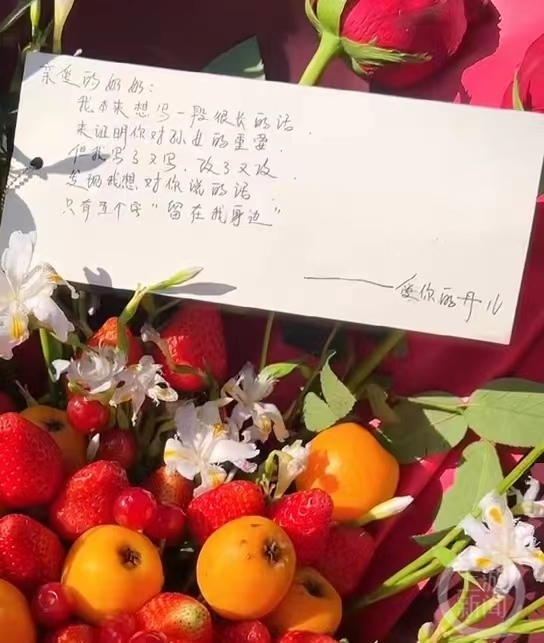 亲爱的奶奶:
我本来想写一段很长的话.
来证明你对孙女的重要.
但我写了又写、改了又改
发现我想对你说的话
只有五个字“留在我身边”
——爱你的丹儿
新闻